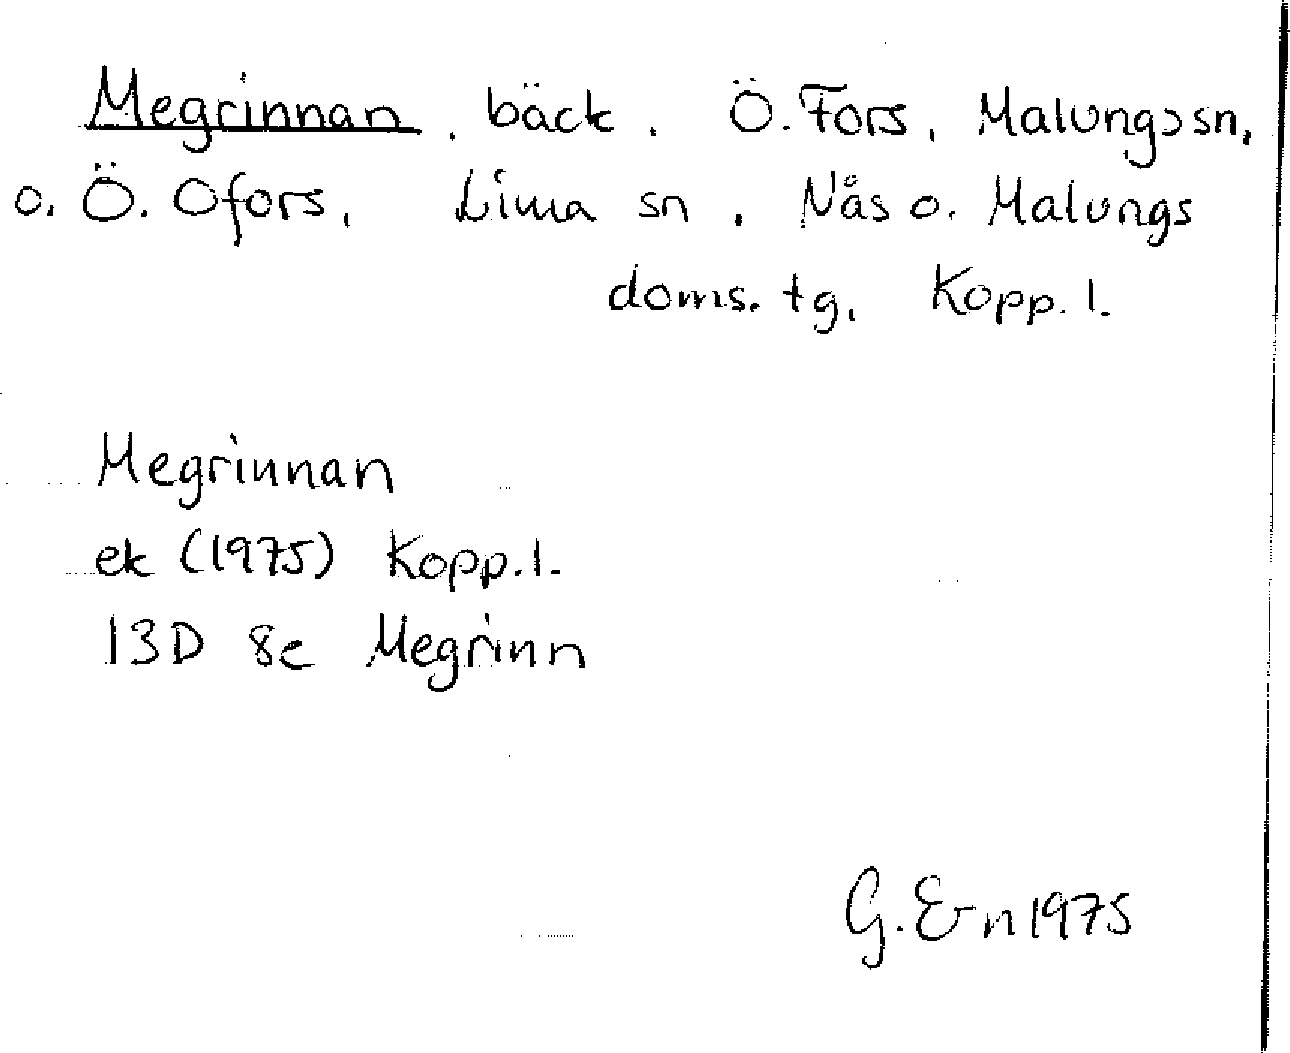 Megrinnan, bäck. Ö. Fors, Malungs sn,
o. Ö. Ofors, Lima sn, Nås o. Malungs
doms. tg, Kopp. l.
Megrinnan
ek (1975) Kopp. l.
13D 8c Megrinn
G. E-n 1975